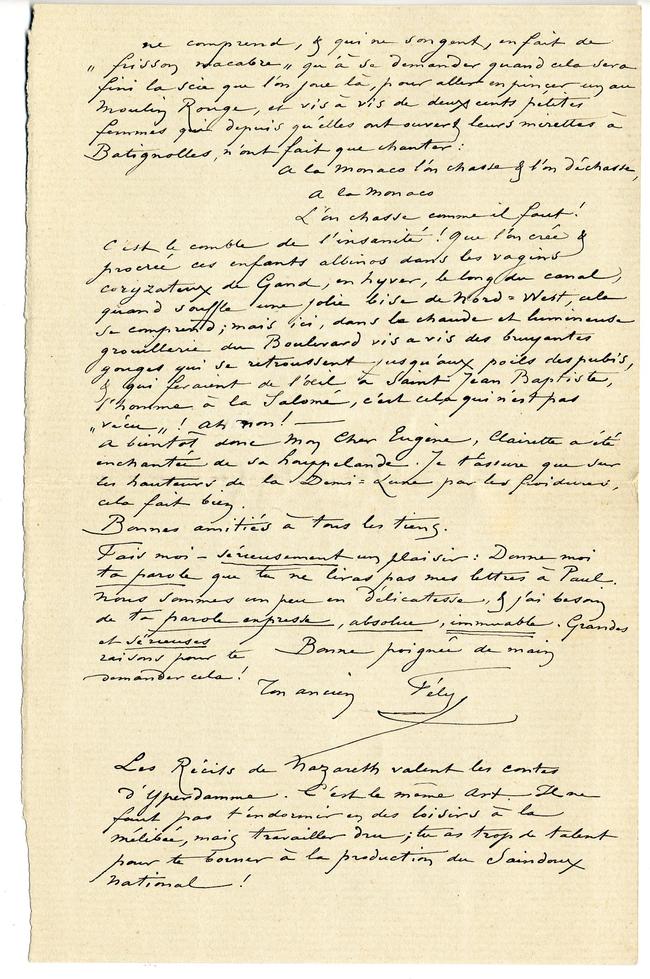 ne comprend, & qui ne songent, en fait de
„ frisson macabre „ qu'à se demander quand cela sera
fini la scie que l'on joue là, pour aller en pincer un au
Moulin Rouge, et vis à vis de deux cents petites
femmes qui depuis qu'elles ont ouvert leurs mirettes à
Batignolles, n'ont fait que chanter :
A la Monaco l'on chasse & l'on déchasse,
A la Monaco
L'on chasse comme il faut !
C'est le comble de l'insanité ! Que l'on crée &
procrée ces enfants albinos dans les vagins
coryzateux de Gand, en hyver, le long du canal,
quand souffle une jolie bise de Nord = West, cela
se comprend ; mais ici, dans la chaude et lumineuse
grouillerie du Boulevard vis a vis des bruyantes
gouges qui se retroussent jusqu'aux poils des pubis,
& qui feraient de l'œil à Saint Jean Baptiste,
l'homme à la Salomé, c'est cela qui n'est pas
„ vécu „ ! Ah non ! —
A bientôt donc Mon Cher Eugène, Clairette a été
enchantée de sa houppelande. Je t'assure que sur
les hauteurs de la Demi = Lune par les froidures,
cela fait bien.
Bonnes amitiés à tous les tiens.
Fais moi – sérieusement un plaisir : Donne moi
ta parole que tu ne liras pas mes lettres à Paul.
Nous sommes un peu en délicatesse, & j'ai besoin
de ta parole expresse, absolue, immuable. Grandes
et sérieuses
raisons pour te Bonne poignée de main
demander cela !
Ton ancien Fély
Les Récits de Nazareth valent les contes
d'Yperdamme. C'est le même Art. Il ne
faut pas t'endormir en des loisirs à la
mélibée, mais travailler dru ; tu as trop de talent
pour te borner à la production du Saindoux
national !